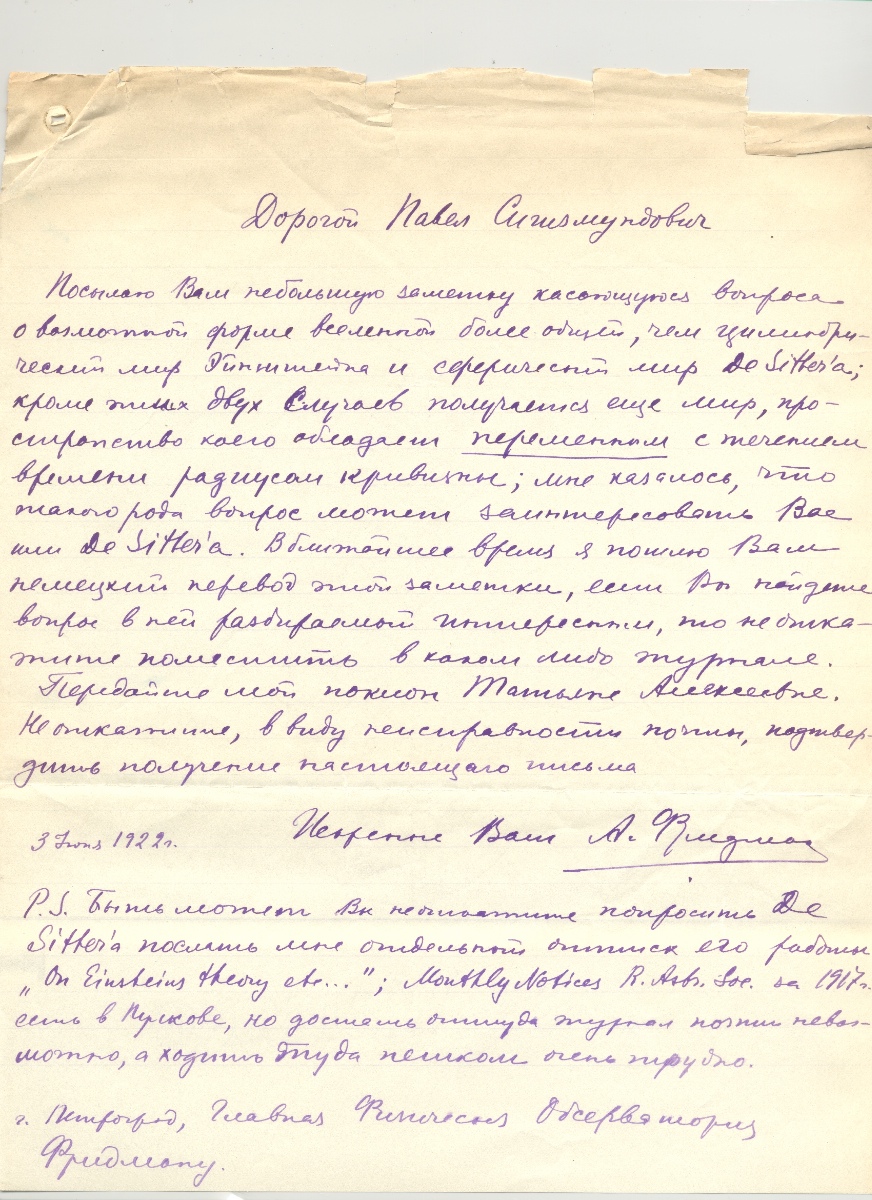 Дорогой Павел Сигизмундович
Посылаю Вам небольшую заметку касающуюся вопроса
о возможной форме вселенной более общей, чем цилиндри-
ческий мир Эйнштейна и сферический мир De Sitter'a;
кроме этих двух случаев получается еще мир, про-
странство коего обладает переменным с течением
времени радиусом кривизны; мне казалось, что
такого рода вопрос может заинтересовать Вас
или De Sitter'a. В ближайшее время я пошлю Вам
немецкий перевод этой заметки, если Вы найдете
вопрос в ней разбираемый интересным, то не отка-
жите поместить в каком либо журнале.
Передайте мой поклон Татьяне Алексеевне.
Не откажите, в виду неисправности почты, подтвер-
дить получение настоящаго письма
Искренне Ваш А. Фридман
3 Июня 1922 г.
P.S. Быть может Вы не откажите попросить De
Sitter'a послать мне отдельный оттиск его работы
„On Einsteins theory etc...“; Monthly Notices R. Astr. Soc. за 1917 г.
есть в Пулкове, но достать оттуда журнал почти невоз-
можно, а ходить туда пешком очень трудно.
г. Петроград, Главная Физическая Обсерватория
Фридману.